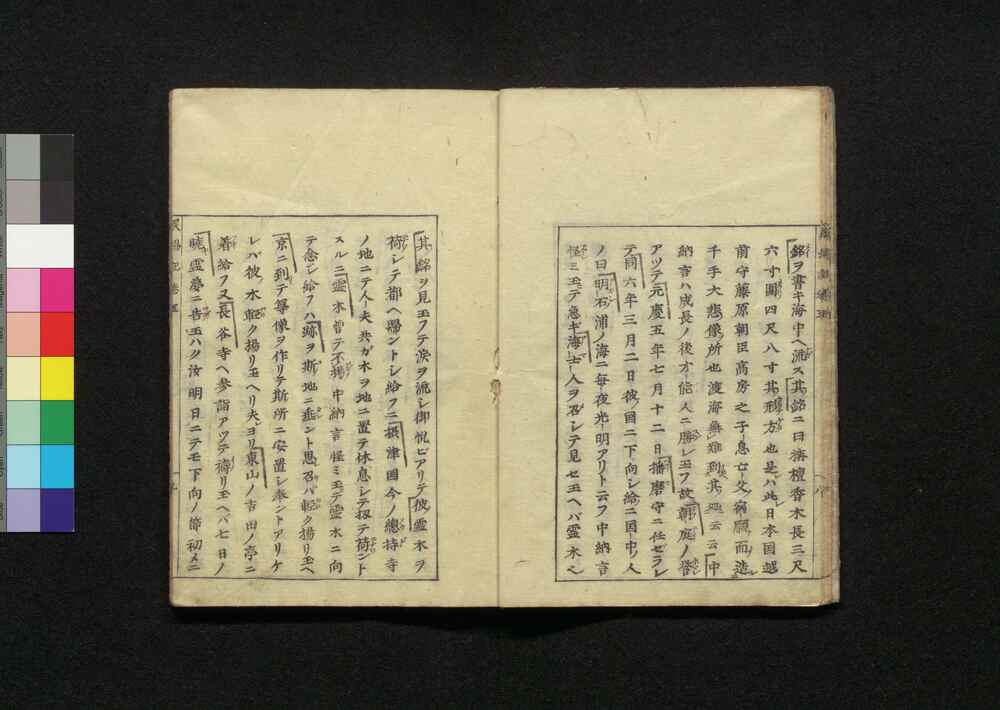 銘ヲ書キ海中ヘ流ス其銘ニ曰栴檀香木長三尺
六寸圓四尺八寸其形方也是ハ此レ日本国越
前守藤原朝臣高房之子息亡父宿願而造
千手大悲像所也渡海無難到其処云云中
納言ハ成長ノ後才能人ニ勝レ玉フ故朝庭ノ誉
アツテ元慶五年七月十二日播磨守ニ任セラレ
テ同六年三月二日彼国ニ下向シ給ニ国中ノ人
ノ曰明石浦ノ海ニ毎夜光明アリト云フ中納言
怪ミ玉テ急ギ海士人ヲ召シテ見セ玉ヘバ霊木ヘ
其銘ヲ見玉フテ涙ヲ流シ御悦ビアリテ彼霊木ヲ
荷シテ都ヘ帰ントシ給フニ摂津国今ノ總持寺
ノ地ニテ人夫共ガ木ヲ地ニ置テ休息シテ扨テ荷ント
スルニ霊木曽テ不揚中納言怪ミ玉デ霊木ニ向
テ念シ給フハ跡ヲ斯地ニ垂ント思召バ軽ク揚リ玉ヘ
京ニ到テ尊像ヲ作リテ斯所ニ安置シ奉ントアリケ
レバ彼木軽ク揚リ玉ヘリ夫ヨリ東山ノ吉田ノ亭ニ
着給フ又長谷寺ヘ参詣アツテ祷リ玉ヘバ七日ノ
暁霊夢ニ告玉ハク汝明日ニテモ下向ノ節初メニ